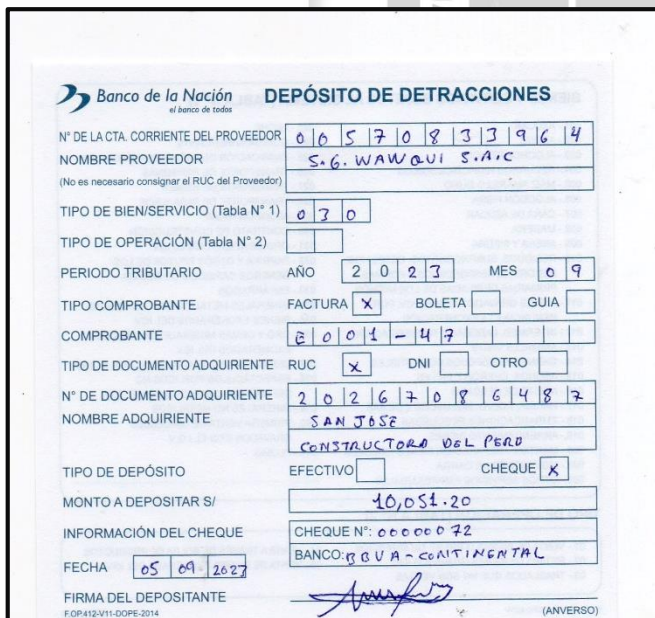 Banco de la Nación
el banco de todos
DEPÓSITO DE DETRACCIONES
N° DE LA CTA. CORRIENTE DEL PROVEEDOR 00570833964
NOMBRE PROVEEDOR S.G. WAWQUI S.A.C
(No es necesario consignar el RUC del Proveedor)
TIPO DE BIEN/SERVICIO (Tabla N° 1) 030
TIPO DE OPERACIÓN (Tabla N° 2)
PERIODO TRIBUTARIO AÑO 2023 MES 09
TIPO COMPROBANTE FACTURA X BOLETA GUIA
COMPROBANTE E001-47
TIPO DE DOCUMENTO ADQUIRIENTE RUC X DNI OTRO
N° DE DOCUMENTO ADQUIRIENTE 20267086487
NOMBRE ADQUIRIENTE SAN JOSE
CONSTRUCTORA DEL PERU
TIPO DE DEPÓSITO EFECTIVO CHEQUE X
MONTO A DEPOSITAR S/ 10,051.20
INFORMACIÓN DEL CHEQUE CHEQUE N°: 00000072
BANCO: BBVA-CONTINENTAL
FECHA 05 09 2023
FIRMA DEL DEPOSITANTE
F.OP.412-V11-DOPE-2014 (ANVERSO)